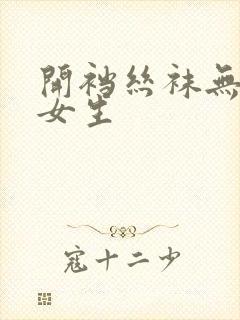 開襠絲袜無
女生
寇十二少